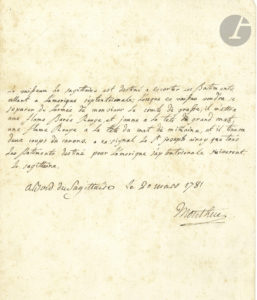 Le vaisseau le Sagittaire est destiné a escorter les Batiments
allant a Lamerique septentrionale, lorsque ce vaisseau voudra se
separer de larmée de monsieur le comte de grasse, il mettra
une flame Barée Rouge et jaune a la tete du grand mat,
une flame Rouge a la tete du mat de mizaine, et il tirera
deux coups de canons, a ce signal le St joseph ainsy que tous
les batiments destiné pour Lamerique septentrionale suiveront
le sagittaire.
abord du Sagittaire le 20 mars 1781
Montluc